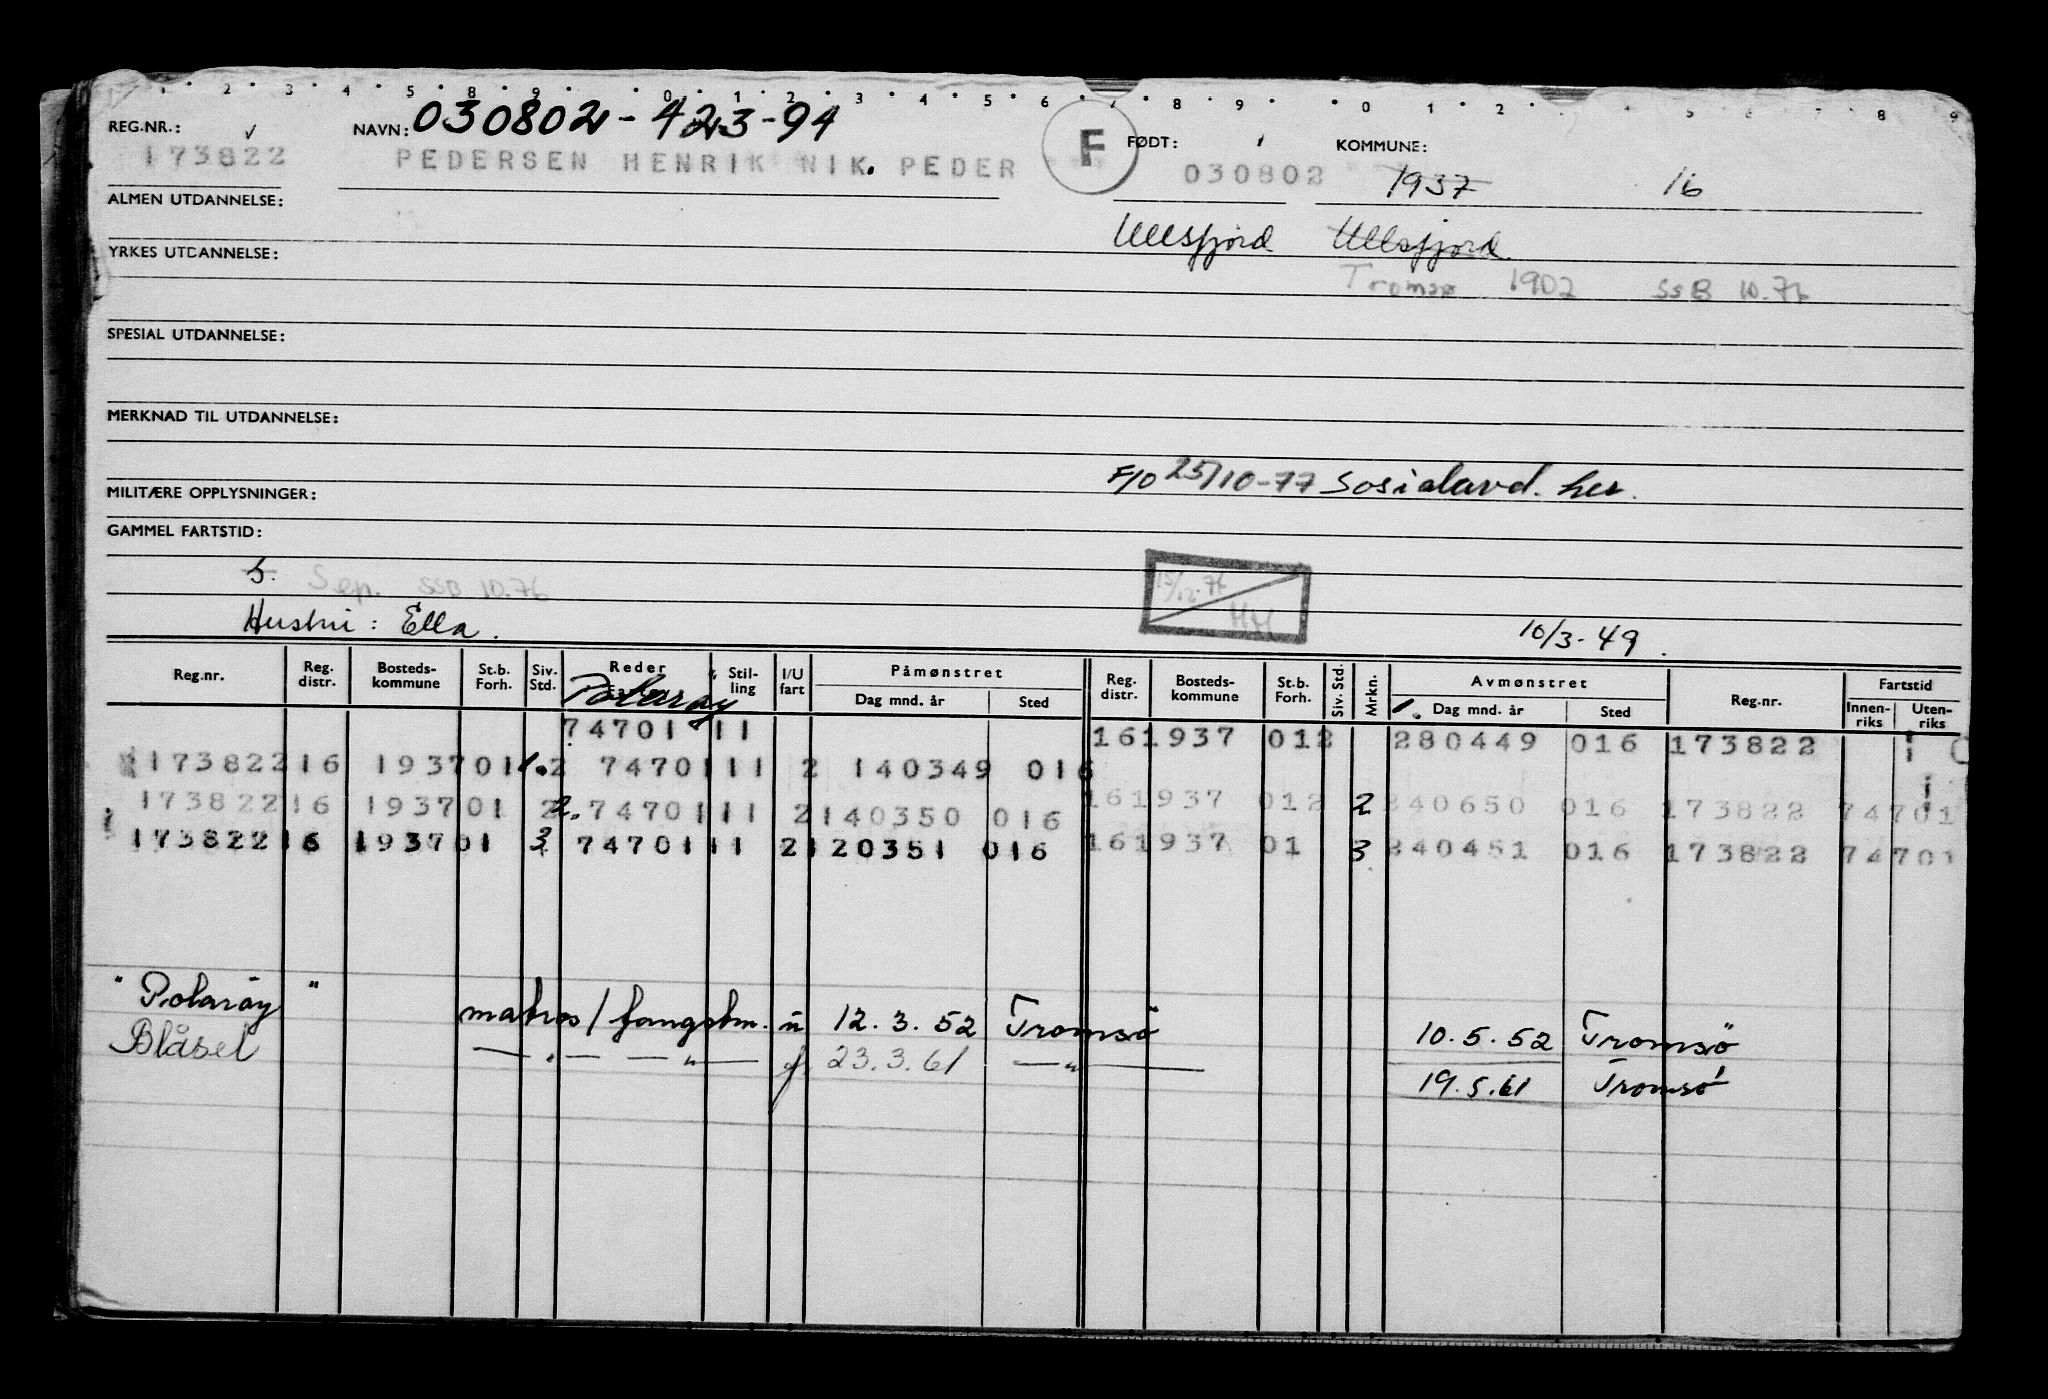 1 2 3 4 5 8 9 0 1 2 3 4 5 6 7 8 9 0 1 2 4 5 6 7 8 9
REG.NR.: NAVN: 030802-423-94 F FØDT: KOMMUNE:
173822 PEDERSEN HENRIK NIK. PEDER 030802 1937 16
ALMEN UTDANNELSE: Ullsfjord Ullsfjord
YRKES UTDANNELSE: Tromsø 1902 SSB 10.76
SPESIAL UTDANNELSE:
MERKNAD TIL UTDANNELSE:
MILITÆRE OPPLYSNINGER: F/O 25/10-77 Sosialavd. her.
GAMMEL FARTSTID:
S. Sep. SSB 10.76 15/12.76 HH
Hustru: Ella. 10/3-49.
Reg.nr. Reg. distr. Bosteds-kommune St.b. Forh. Siv. Std. Reder Polarøy Stil-ling I/U fart Påmønstret Dag mnd. år Sted Reg. distr. Bosteds-kommune St.b. Forh. Siv. Std. Mrkn. Avmønstret 1. Dag mnd. år Sted Reg.nr. Fartstid Innen-riks Uten-riks
74701 11 161937 012 280449 016 173822
173822 16 1937 01 1. 2 74701 11 2 140349 016
173822 16 1937 01 2 2. 74701 11 2 140350 016 161937 012 2 240650 016 173822 74701
173822 16 1937 01 3 74701 11 2 120351 016 161937 01 3 240451 016 173822 74701
"Polarøy" matros/fangstm. u 12.3.52 Tromsö 10.5.52 Tromsö
Blåsel — " — — " — f. 23.3.61 — " — 19.5.61 Tromsö